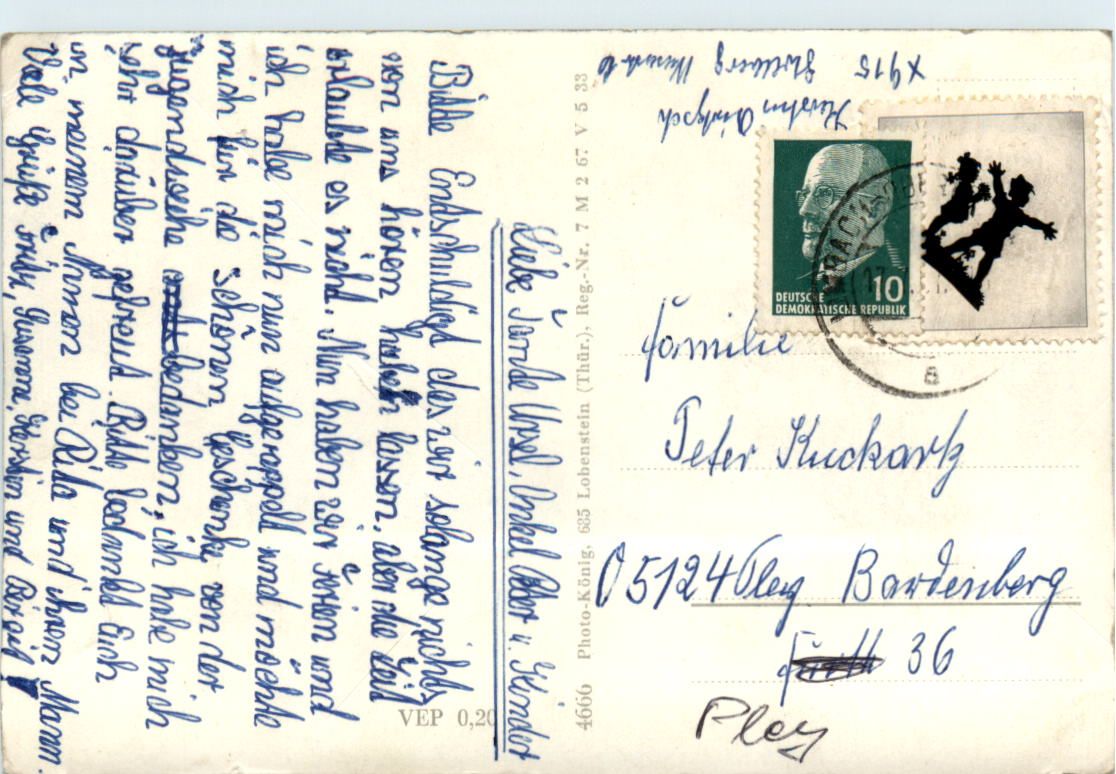 Liebe Tante Ursel, Onkel Peter u. Kinder
Bitte Entschuldigt das wir solange nichts
von uns hören haben lassen, aber die Zeit
erlaubte es nicht. Nun haben wir Ferien und
ich habe mich nun aufgerappelt und möchte
mich für die schönen Geschenke von der
Jugendweihe bedanken, ich habe mich
sehr darüber gefreut. Bitte bedankt Euch
in meinem Namen bei Rita und ihrem Mann.
Viele Grüße Kerstin und
4666 Photo-König, 685 Lobenstein (Thür.), Reg.-Nr. 7 M 2 67 V 5 33
VEP 0,20
X 915 Stollberg
Kerstin
DEUTSCHE
DEMOKRATISCHE REPUBLIK
10
a
Familie
Peter Kuckartz
05124 Pley Bardenberg
36
Pley